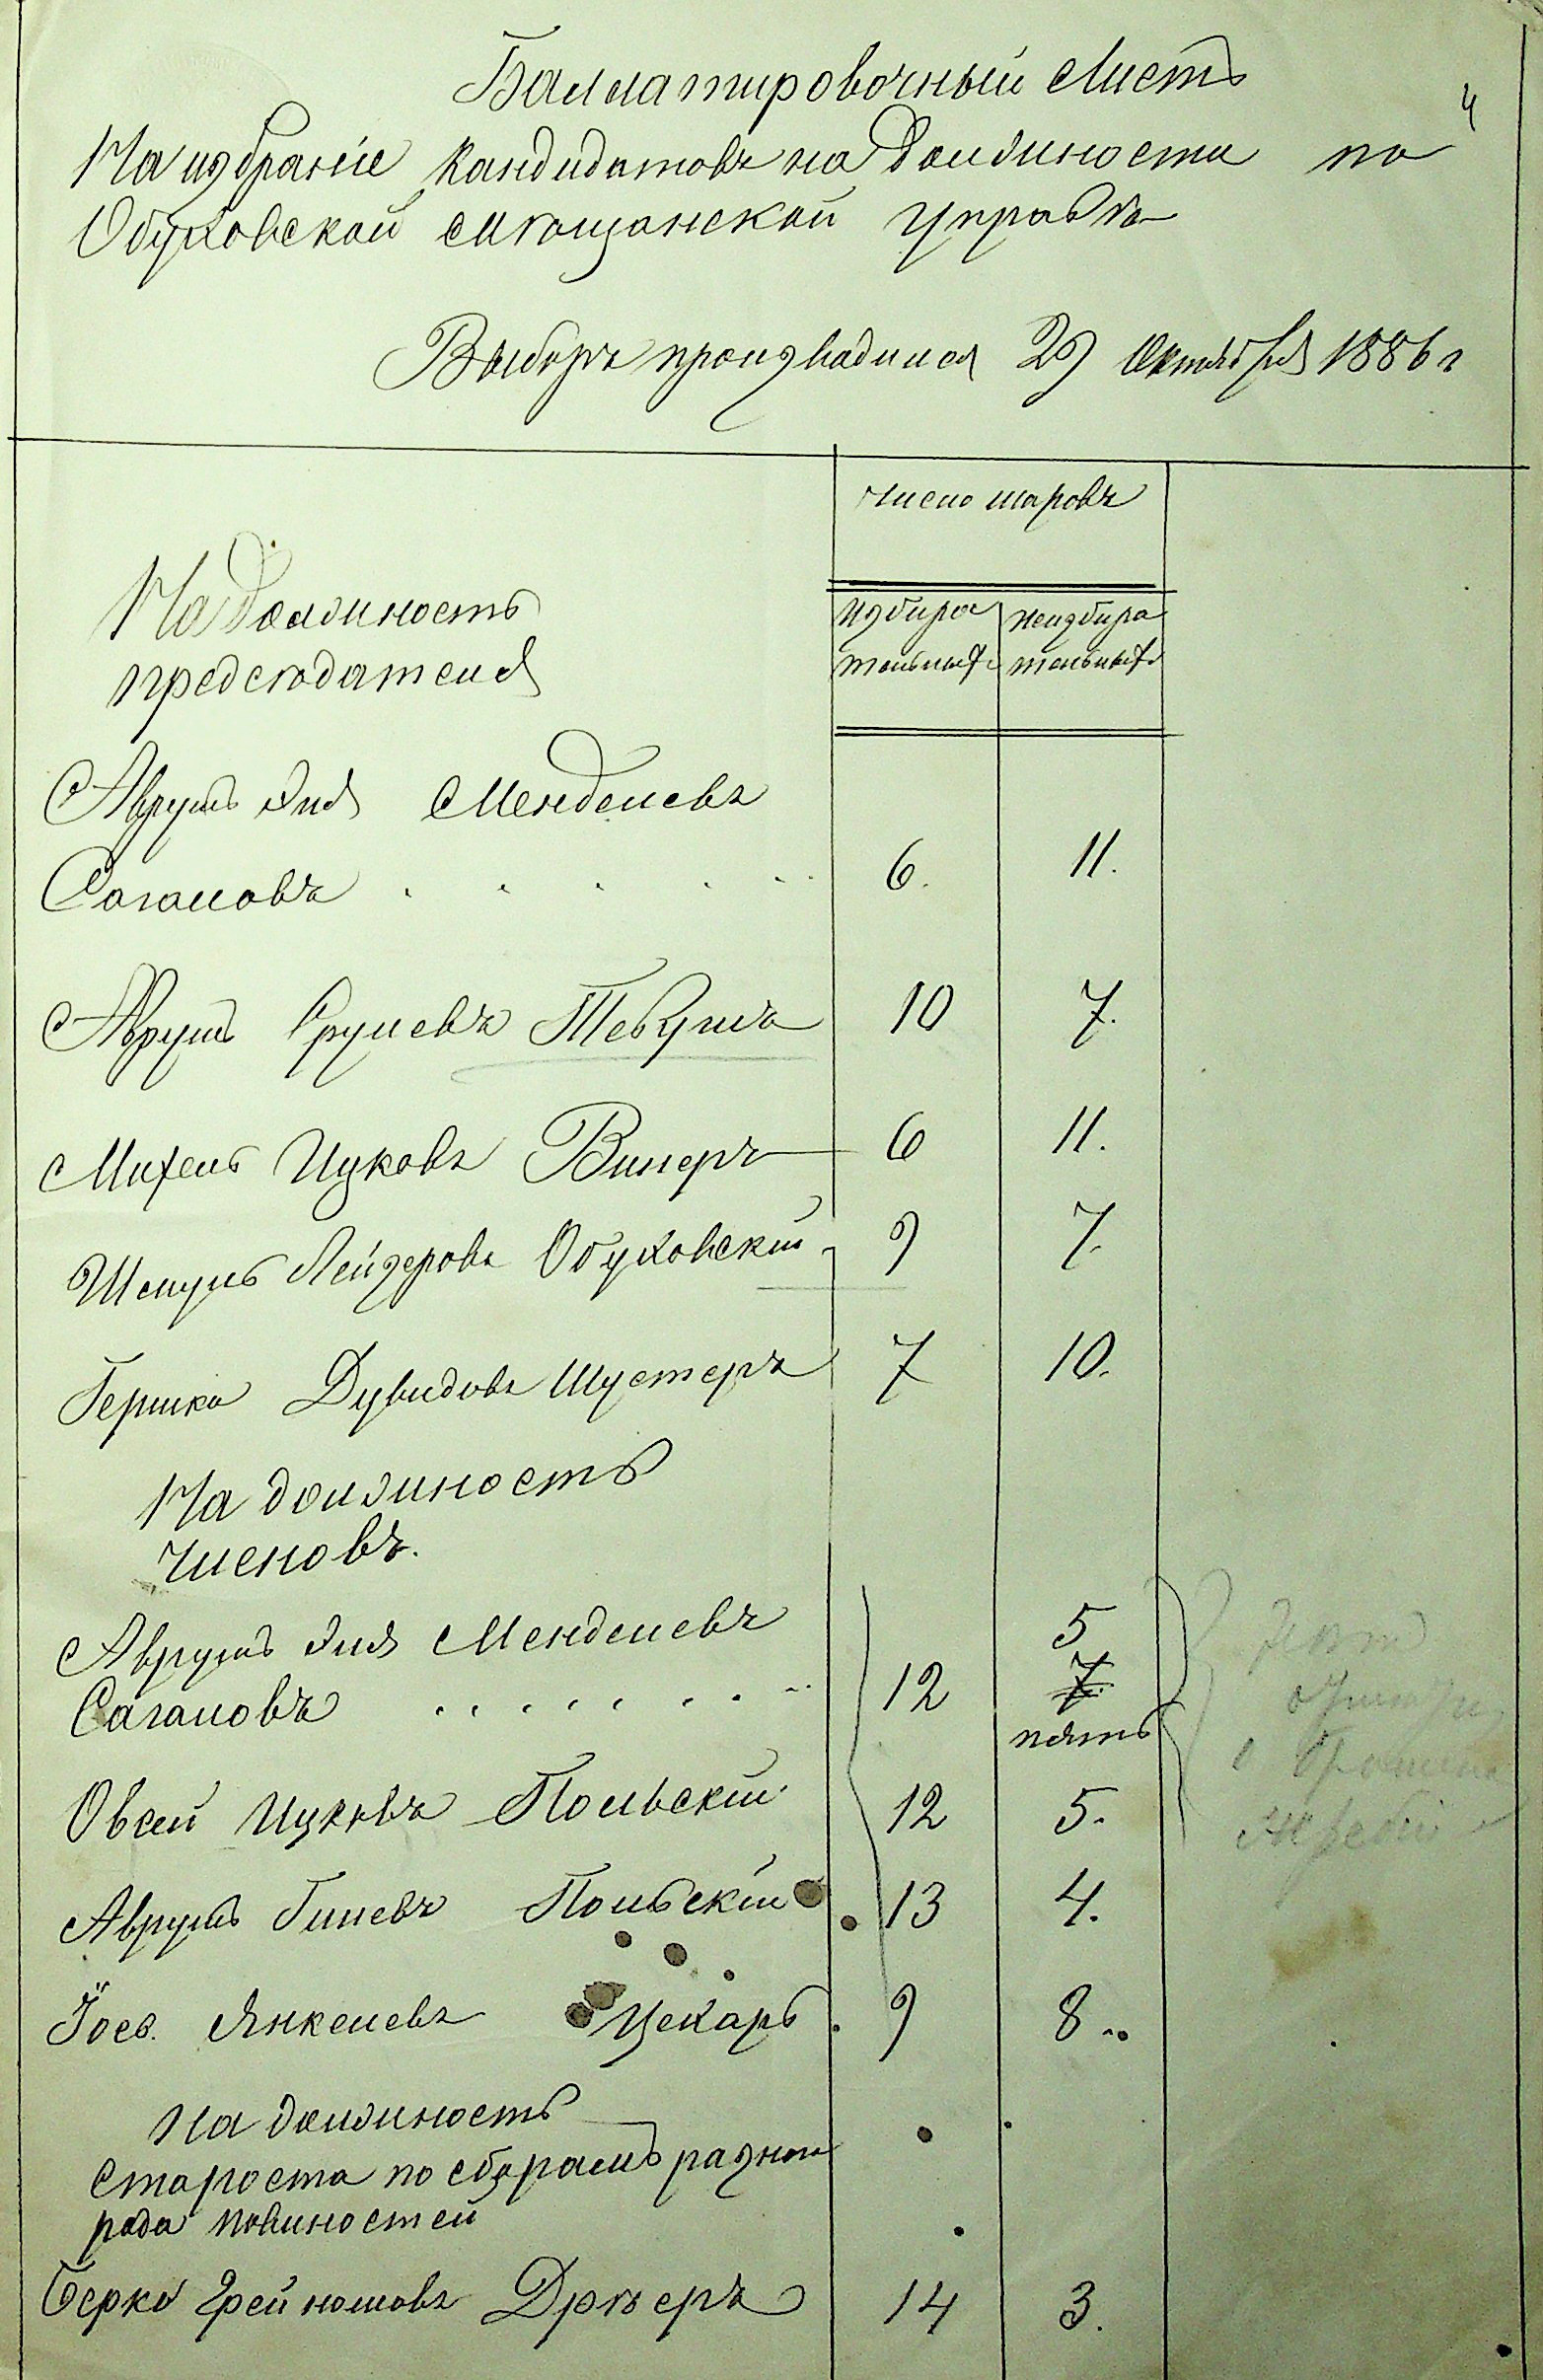 4
Баллатировочный Листъ
На избраніе кандидатовъ на должности по
Обуховской Мѣщанской Управѣ
Выборъ производился 29 Октября 1886 г
Число шаровъ
На должность
предсѣдателя
Избира
тельныхъ
Неизбира
тельныхъ
Аврумъ Эля Менделевъ
Сагаловъ . . . . . . 6. 11.
Аврумъ Срулевъ 10 7.
Михель Ицковъ Винеръ 6 11.
Шмуль Лейзеровъ Обуховскій 9 7.
Гершко Дувидовъ Шустеръ 7 10.
На должность
членовъ.
Аврумъ Эля Менделевъ 5
Сагаловъ . . . . . . . . 12 7.
пять
Овсей Ицковъ Польскій 12 5.
Аврумъ Польскій 13 4.
Іос. Янкелевъ Цекарь 9 8..
На должность
Староста по сборамъ разнаго
рода повиностей
Берко 14 3.
жребій